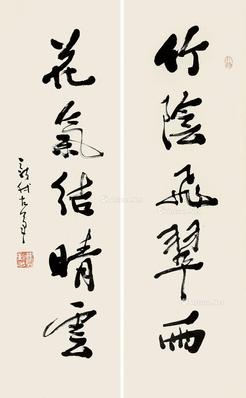 竹陰飛翠雨
花氣結晴雲